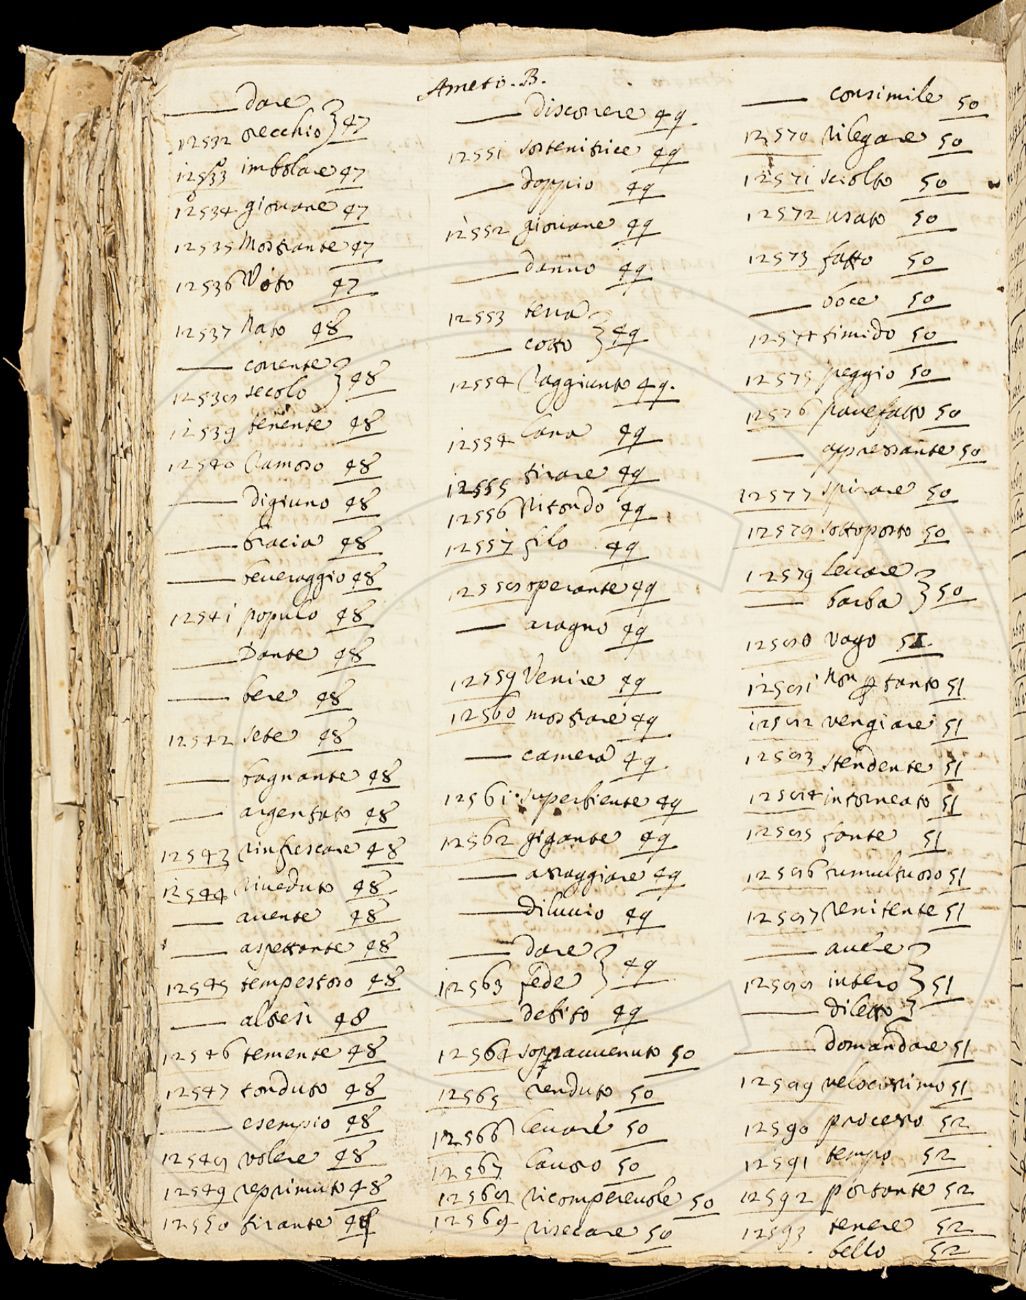 Ameto. B.
— dare
12532 orecchio } 47
12533 imbolare 47
12534 giovare 47
12535 Mostrante 47
12536 Voto 47
12537 Nato 48
— corrente
12538 secolo } 48
12539 tenente 48
12540 Ramoso 48
— digiuno 48
— bracia 48
— beveraggio 48
12541 populo 48
— Dante 48
— bere 48
12542 sete 48
— bagnante 48
— argentato 48
12543 Rinfrescare 48
12544 Riveduto 48
— avente 48
— aspettante 48
12545 tempestoso 48
— altresì 48
12546 temente 48
12547 tonduto 48
— esempio 48
12548 volere 48
12549 reprimuto 48
12550 tirante 48
— discorrere 49
12551 sostenitrice 49
— doppio 49
12552 giovane 49
— danno 49
12553 terra
— cotto } 49
12554 Raggiunto 49.
12554 lana 49
12555 tirare 49
12556 Ritondo 49
12557 filo 49
12558 operante 49
— aragno 49
12559 Venire 49
12560 mostrare 49
— camera 49
12561 superbiente 49
12562 gigante 49
— assaggiare 49
— diluvio 49
— dare
12563 fede } 49
— debito 49
12564 sopravvenuto 50
12565 renduto 50
12566 levare 50
12567 lauro 50
12568 ricomperevole 50
12569 risecare 50
— consimile 50
12570 rilegare 50
12571 sciolto 50
12572 usato 50
12573 fatto 50
— voce 50
12574 timido 50
12575 peggio 50
12576 pauefatto 50
— appressante 50
12577 spirare 50
12578 sottoposto 50
12579 levare
— barba } 50
12580 vago 51.
12581 Non p tanto 51
12582 vengiare 51
12583 stendente 51
12584 intorneato 51
12585 fonte 51
12586 tumultuoso 51
12587 renitente 51
— avere
12588 intero } 51
— diletto }
— domandare 51
12589 velocissimo 51
12590 processo 52
12591 tempo 52
12592 portante 52
12593 tenere 52
bello 52